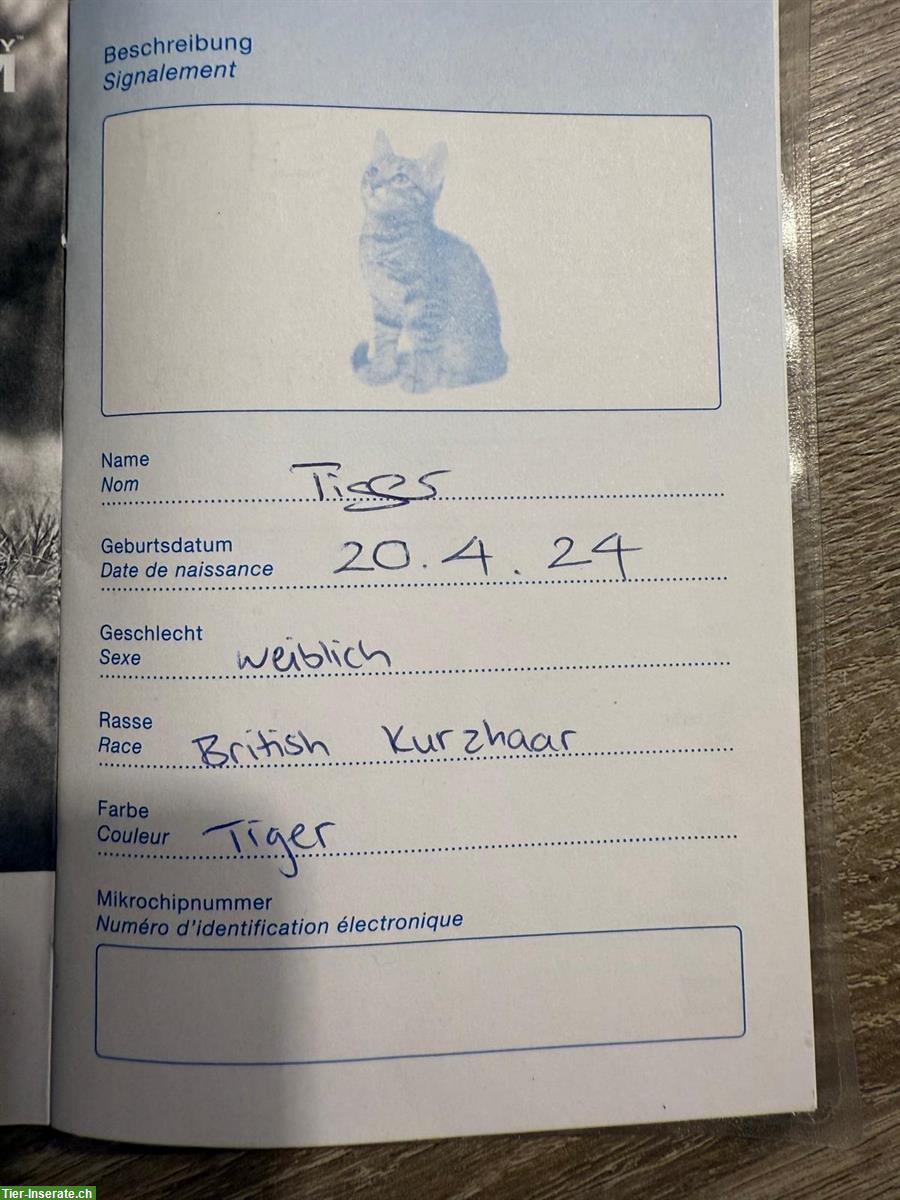 Beschreibung
Signalement
Name
Nom
Geburtsdatum 20.4.24
Date de naissance
Geschlecht
Sexe weiblich
Rasse
Race British Kurzhaar
Farbe
Couleur Tiger
Mikrochipnummer
Numéro d'identification électronique
Tier-Inserate.ch